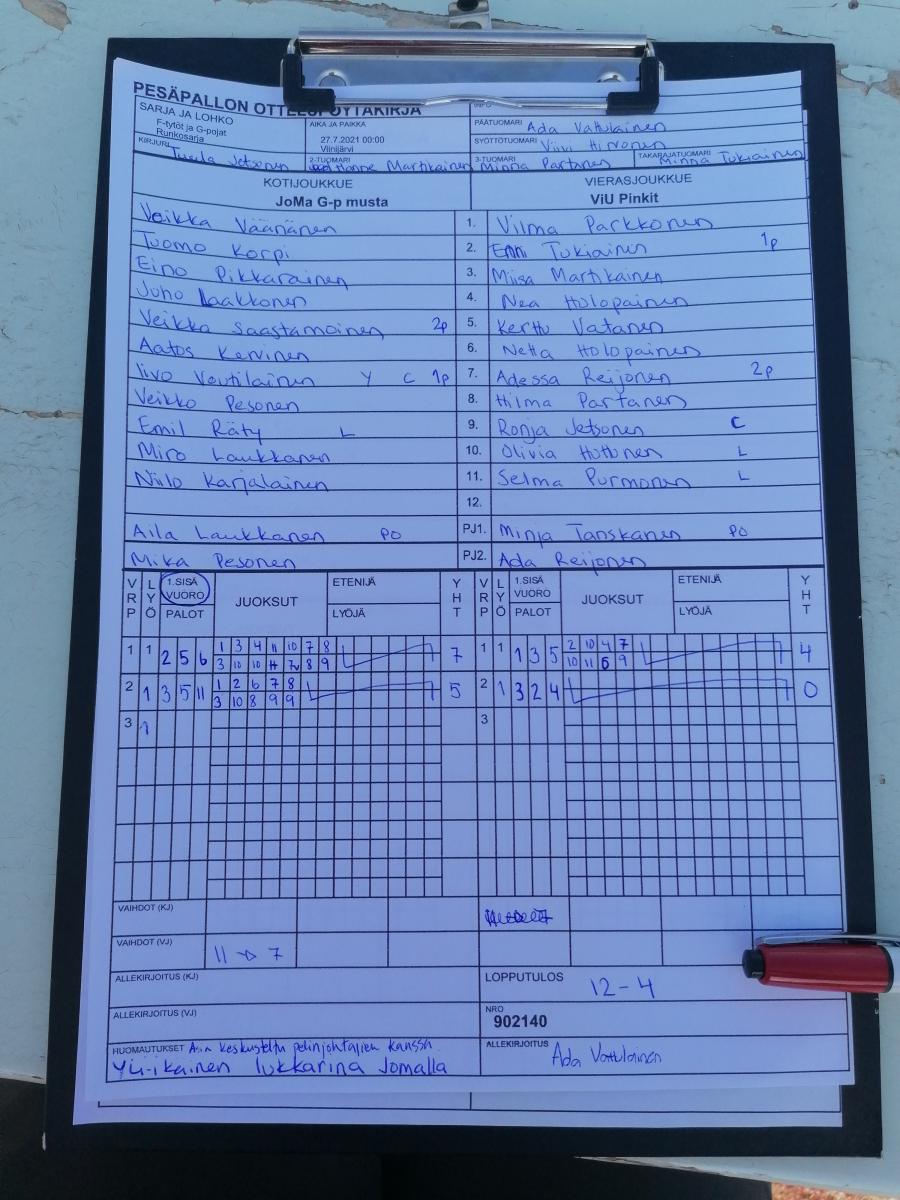 PESÄPALLON OTTELUPÖYTÄKIRJA
SARJA JA LOHKO
F-tytöt ja G-pojat
Runkosarja
AIKA JA PAIKKA
27.7.2021 00:00
Viinijärvi
INFO
PÄÄTUOMARI Ada Vattulainen
SYÖTTÖTUOMARI Viivi Hirvonen
KIRJURI Tuula Jetsonen
2-TUOMARI Hanne Martikainen
3-TUOMARI Minna Partanen
TAKARAJATUOMARI Minna Tukiainen
KOTIJOUKKUE VIERASJOUKKUE
JoMa G-p musta ViU Pinkit
Veikka Väänänen 1. Vilma Parkkonen
Tuomo Korpi 2. Emmi Tukiainen 1p
Eino Pikkarainen 3. Miisa Martikainen
Juho Laakkonen 4. Nea Holopainen
Veikka Saastamoinen 2p 5. Kerttu Vatanen
Aatos Kervinen 6. Netta Holopainen
Iivo Voutilainen Y C 1p 7. Adessa Reijonen 2p
Veikko Pesonen 8. Hilma Partanen
Emil Räty L 9. Ronja Jetsonen C
Miro Laukkanen 10. Olivia Huttonen L
Niilo Karjalainen 11. Selma Purmonen L
12.
Aila Laukkanen PO PJ1. Minja Tanskanen PO
Mika Pesonen PJ2. Ada Reijonen
VRP LYÖ 1.SISÄ VUORO PALOT JUOKSUT ETENIJÄ LYÖJÄ YHT VRP LYÖ 1.SISÄ VUORO PALOT JUOKSUT ETENIJÄ LYÖJÄ YHT
1 1 2 5 6 1 3 4 11 10 7 8 7 1 1 1 3 5 2 10 4 7 4
3 10 10 11 8 9 10 11 6 9
2 1 3 5 11 1 2 6 7 8 5 2 1 3 2 4 0
3 10 8 9 9
3 1 3
VAIHDOT (KJ)
VAIHDOT (VJ) 11 → 7
ALLEKIRJOITUS (KJ) LOPPUTULOS 12-4
ALLEKIRJOITUS (VJ) NRO
902140
HUOMAUTUKSET Asia keskusteltu pelinjohtajien kanssa.
Yli-ikäinen lukkarina Jomalla
ALLEKIRJOITUS Ada Vattulainen